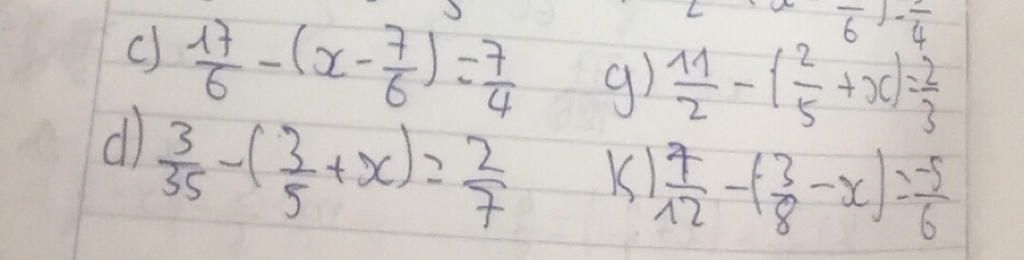 c) 17/6 - (x - 7/6) = 7/4
g) 11/2 - (2/5 + x) = 2/3
d) 3/35 - (3/5 + x) = 2/7
k) 7/12 - (3/8 - x) = -5/6